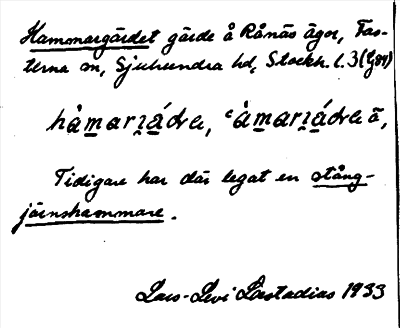 Hammargärdet gärde å Rånäs ägor, Fas-
terna sn, Sjuhundra hd, Stockh. l. 3
hàmarjádra, `àmarjádra ã,
Tidigare har där legat en stång-
järnshammare.
Lars-Levi Læstadius 1933